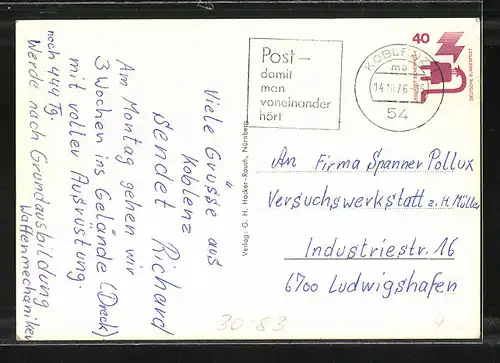 Viele Grüsse aus
Koblenz
sendet Richard
Am Montag gehen wir
3 Wochen ins Gelände (Dreck)
mit voller Ausrüstung.
noch 444 Tg.
Werde nach Grundausbildung
Waffenmechaniker
Verlag: G. H. Hacker-Rauch, Nürnberg
Post –
damit
man
voneinander
hört
KOBLENZ
54
40
DEUTSCHE BUNDESPOST
An Firma Spanner Pollux
Versuchswerkstatt z. H. Müller
Industriestr. 16
6700 Ludwigshafen
30-53